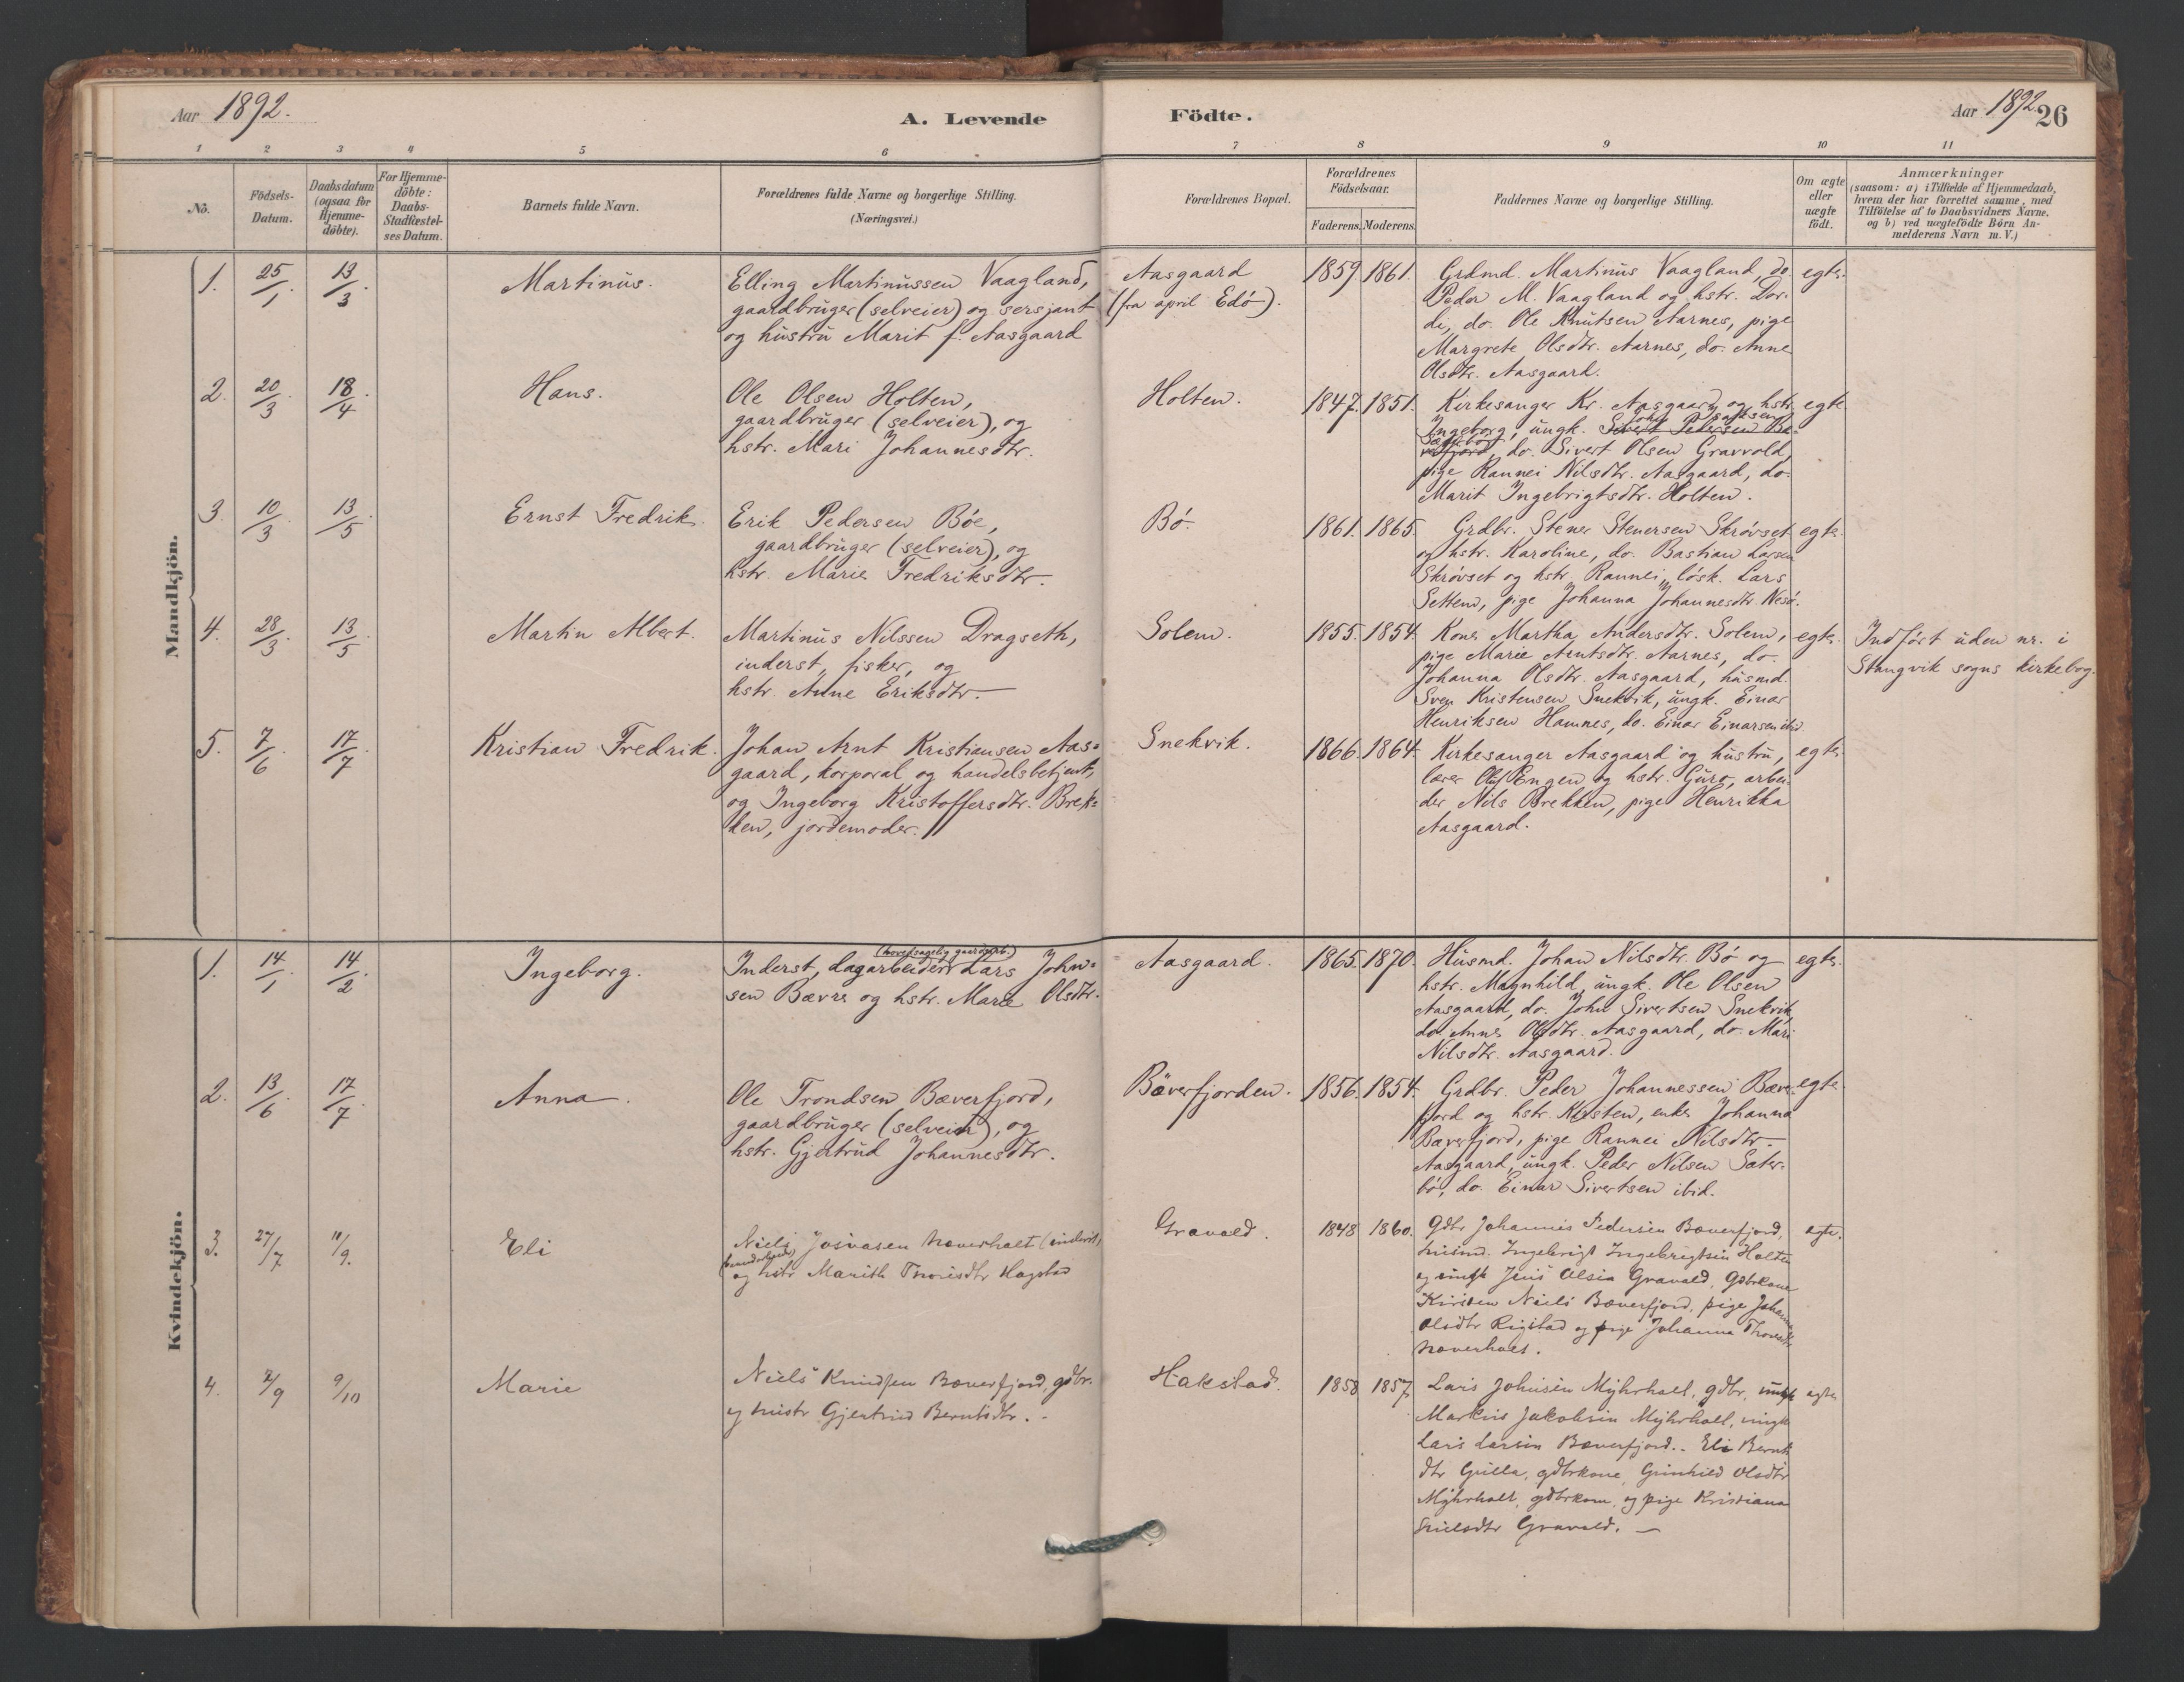 Aar 1892.
A. Levende Födte.
Aar 1892.
26
1 2 3 4 5 6 7 8 9 10 11
No.
Födsels-Datum.
Daabsdatum (ogsaa for Hjemme-döbte).
For Hjemme-döbte: Daabs-Stadfæstel-ses Datum.
Barnets fulde Navn.
Forældrenes fulde Navne og borgerlige Stilling.
(Næringsvei.)
Forældrenes Bopæl.
Forældrenes Födselsaar.
Faderens. Moderens.
Faddernes Navne og borgerlige Stilling.
Om ægte eller uægte födt.
Anmærkninger
(saasom: a) i Tilfælde af Hjemmedaab,
hvem der har forrettet samme, med
Tilföielse af to Daabsvidners Navne.
og b) ved uægtefödte Börn An-
melderens Navn m.V.)
Mandkjön.
1. 25/1. 13/3. Martinus.
Elling Martinussen Vaagland,
gaardbruger (selveier) og sersjant
og hustru Marit f. Aasgaard
Aasgaard
(fra april Edö).
1859. 1861.
Grdmd. Martinus Vaagland, do.
Peder M. Vaagland og hstr. Dor-
di, do. Ole Knutsen Aarnes, pige
Margrete Olsdtr. Aarnes, do. Anne
Olsdtr. Aasgaard.
egte.
2. 20/3. 18/4. Hans.
Ole Olsen Holten,
gaardbruger (selveier), og
hstr. Mari Johannesdtr.
Holten.
1847. 1851.
Kirkesanger Kr. Aasgaard og hstr.
Ingeborg, ungk. Sivert Pedersen Bæ-
verfjord, do. Sivert Olsen Gravvold,
pige Rannei Nilsdtr. Aasgaard, do.
Marit Ingebrigtsdtr. Holten.
egte
3. 10/3. 13/5. Ernst Fredrik.
Erik Pedersen Böe,
gaardbruger (selveier), og
hstr. Marie Fredriksdtr.
Bö.
1861. 1865.
Grdbr. Stener Stenersen Skrövset
og hstr. Karoline, do. Bastian Larsen
Skrövset og hstr. Rannei, lösk. Lars
Settem, pige Johanna Johannesdtr. Nesö.
egte.
4. 28/3. 13/5. Martin Albert.
Martinus Nilssen Dragseth,
inderst, fisker, og
hstr. Anne Eriksdtr.
Solem.
1855. 1854.
Kone Martha Andersdtr. Solem,
pige Marie Arntsdtr. Aarnes, do.
Johanna Olsdtr. Aasgaard, husmd.
Sven Kristensen Snekvik, ungk. Einar
Henriksen Hamnes, do. Einar Einarsen ibid
egte.
Indfört uden nr. i
Stangvik sogns kirkebog.
5. 7/6. 17/7. Kristian Fredrik.
Johan Arnt Kristiansen Aas-
gaard, korporal og handelsbetjent,
og Ingeborg Kristoffersdtr. Brek-
ken, jordemoder.
Snekvik.
1866. 1864.
Kirkesanger Aasgaard og hustru,
lærer Oluf Engen og hstr. Guro, arbei-
der Nils Brekken, pige Henrikka
Aasgaard.
egte.
Kvindekjön.
1. 14/1. 14/2. Ingeborg.
(hovedsagelig gaardarb.)
Inderst, dagarbeider Lars John-
sen Bævre og hstr. Marie Olsdtr.
Aasgaard.
1865. 1870.
Husmd. Johan Nilsdtr. Bö og
hstr. Magnhild, ungk. Ole Olsen
Aasgaard, do. John Sivertsen Snekvik,
do. Anne Olsdtr. Aasgaard, do. Mari
Nilsdtr. Aasgaard.
egte.
2. 13/6. 17/7. Anna.
Ole Trondsen Bæverfjord,
gaardbruger (selveier), og
hstr. Gjertrud Johannesdtr.
Bæverfjorden.
1856. 1854.
Grdbr. Peder Johannessen Bæver-
fjord og hstr. Kirsten, enke Johanna
Bæverfjord, pige Rannei Nilsdtr.
Aasgaard, ungk. Peder Nilsen Sæter-
bö, do. Einar Sivertsen ibid.
egte.
3. 27/7 11/9. Eli
Niels Josvasen Naverhalt (inderst,
og hstr Marith Thoresdtr Hagstad
Gravald.
1848 1860.
Gdbr Johannes Pedersen Bæverfjord,
husmd. Ingebrigt Ingebrigtsen Holten
og ungk Jens Olsen Gravald, Gdbrkone
Kirsten Niels Bæverfjord, pige Johanna
Olsdtr Rigstad og pige Johanna Thoresdtr
Naverhalt.
egte.
4. 2/9 9/10 Marie
Niels Knudsen Bæverfjord, gdbr.
og hustr Gjertrud Berntsdtr.
Hakstad.
1858 1857
Lars Johnsen Myhrholt, gdbr, ungk
Markus Jakobsen Myhrholt, ungk
Lars Larsen Bæverfjord. Eli Bernts
dtr Gulla, gdbrkone, Gunhild Olsdtr
Myhrholt, gdbrkone, og pige Kristiana
Nielsdtr Gravald.
egte